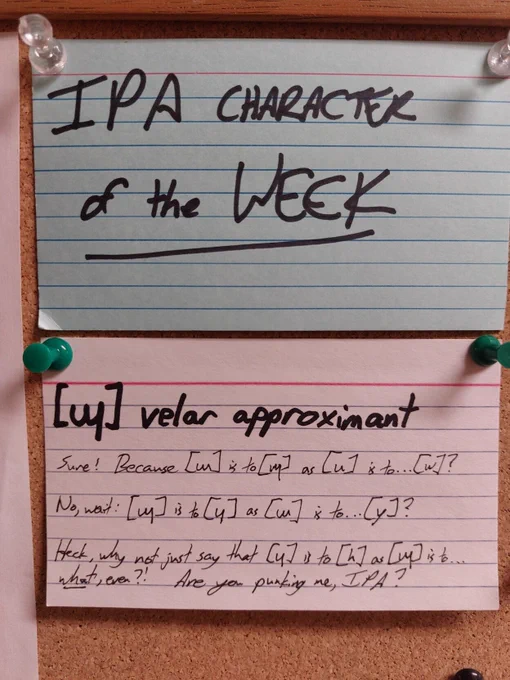 IPA CHARACTER
of the WEEK
[ɰ] velar approximant
Sure! Because [ɯ] is to [ɰ] as [u] is to...[w]?
No, wait: [ɰ] is to [ɥ] as [ɯ] is to...[y]?
Heck, why not just say that [ɥ] is to [h] as [ɰ] is to...
what, even?! Are you punking me, IPA?